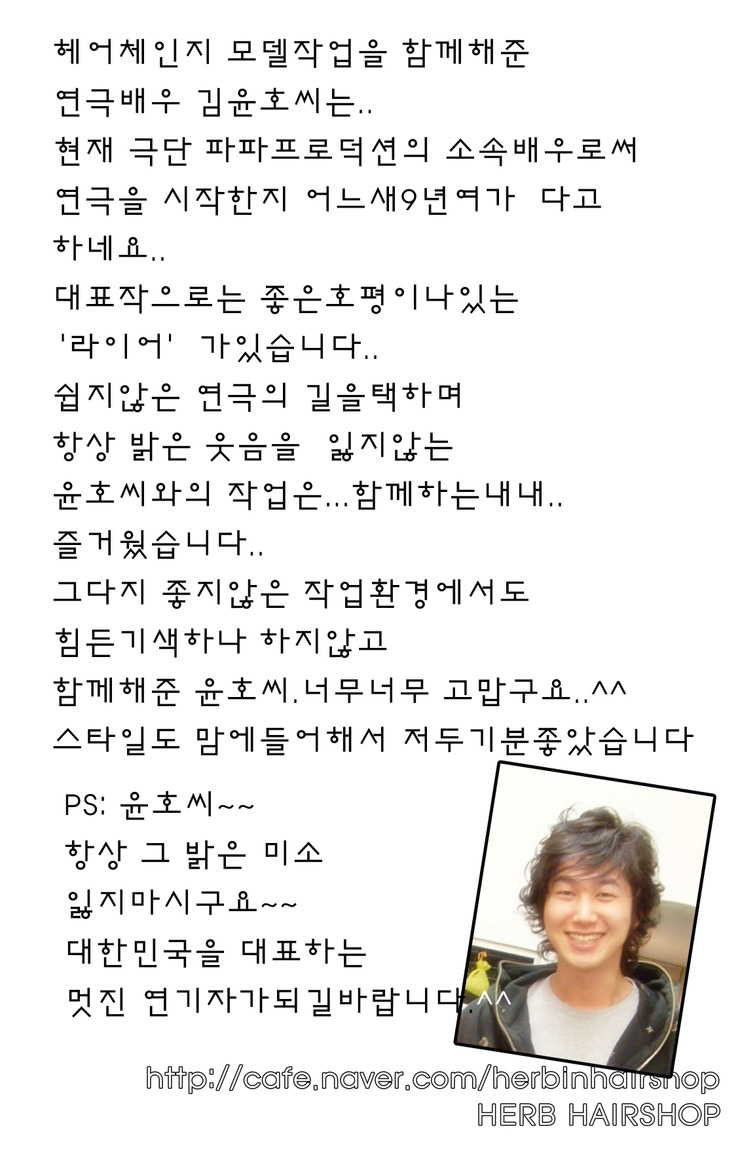 헤어체인지 모델작업을 함께해준
연극배우 김윤호씨는..
현재 극단 파파프로덕션의 소속배우로써
연극을 시작한지 어느새9년여가 다고
하네요..
대표작으로는 좋은호평이나있는
'라이어' 가있습니다..
쉽지않은 연극의 길을택하며
항상 밝은 웃음을 잃지않는
윤호씨와의 작업은...함께하는내내..
즐거웠습니다..
그다지 좋지않은 작업환경에서도
힘든기색하나 하지않고
함께해준 윤호씨.너무너무 고맙구요..^^
스타일도 맘에들어해서 저두기분좋았습니다
PS: 윤호씨~~
항상 그 밝은 미소
잃지마시구요~~
대한민국을 대표하는
멋진 연기자가되길바랍니다.^^
http://cafe.naver.com/herbinhairshop
HERB HAIRSHOP